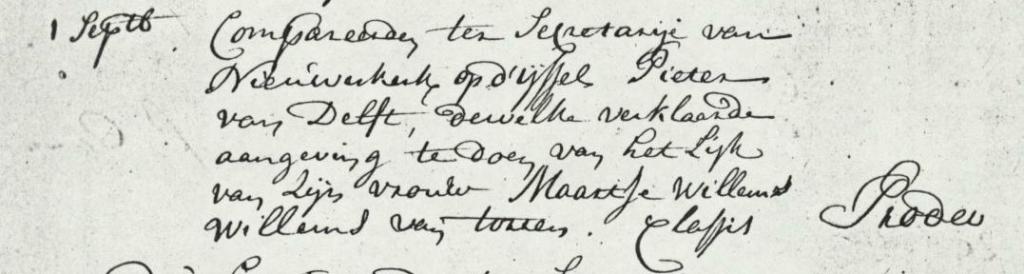 1 Septb. Compareerden ter Secretarije van
Nieuwerkerk op d'ijssel Pieter
van Delft, dewelke verklaarde
aangeving te doen van het Lijk
van Zijn vrouw Maartje Willems
Willems van tossen. Classis Prodeo